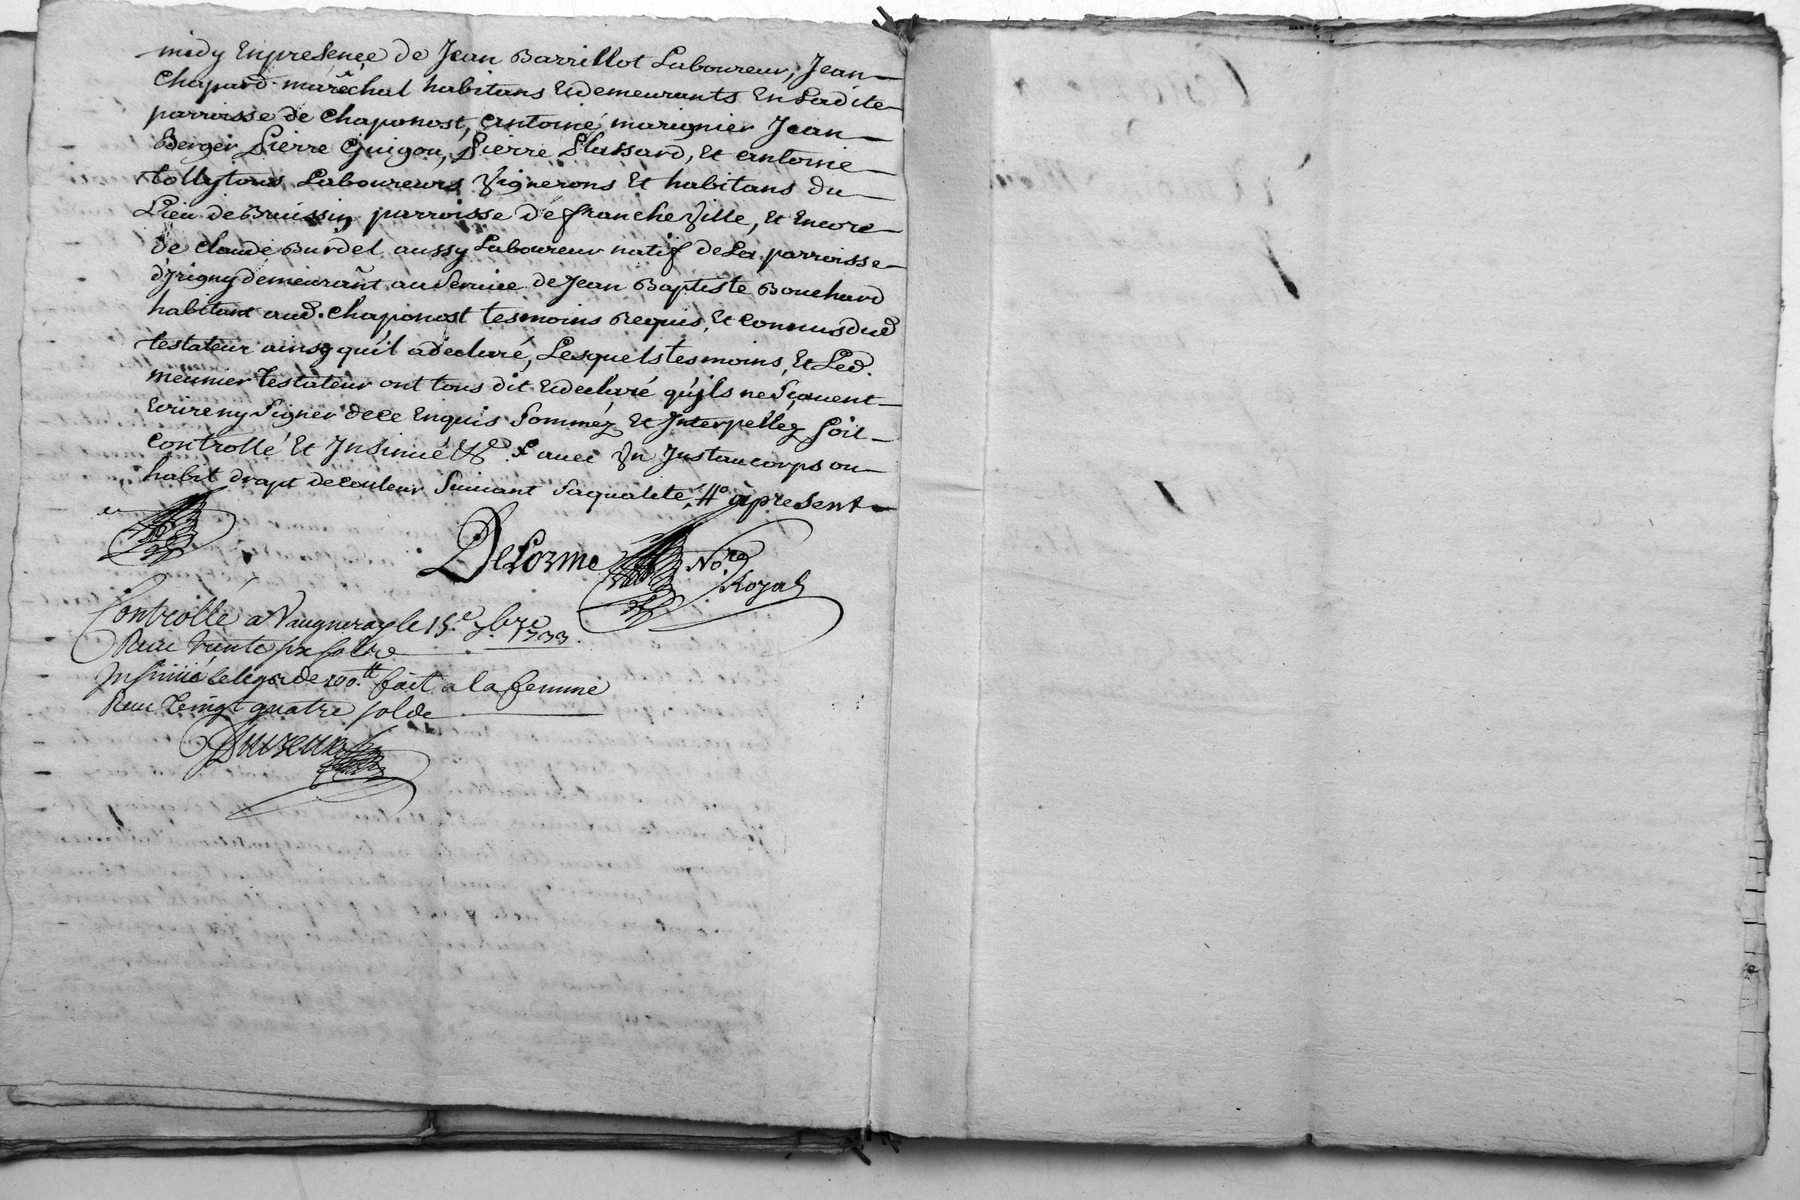 midy Enpresence de Jean Barrillot Laboureur, Jean
Chapard maréchal habitans Et demeurants En Ladite
parroisse de Chaponost, antoine marignier Jean
Berger Pierre Guigou, Pierre Plassard, Et antoine
tollytous Laboureurs Vignerons Et habitans du
Lieu de Bruissin parroisse de francheville, Et Encore
de Claude Burdel aussy Laboureur natif de La parroisse
d'Jrigny demeurant au Service de Jean Baptiste Bouchard
habitant aud. Chaponost tesmoins Requis, Et Connus dud
testateur ainsy quil a declaré, Lesquels tesmoins, Et Led.
meunier testateur ont tous dit Et declaré qu'jls ne Sçavent
Ecrire ny Signer de ce Enquis Sommez Et Jnterpellez Soit
Controllé Et Jnsinué &c avec Vn Justaucorps ou
habit drapt de Couleur Suivant Sa qualité, àpresent
DeLorme No.re
Royal
Controllé a Vaugneray le 15.e 7bre 1733.
Receu trente six solds
Jnsinué le legs de 100.tt fait a la femme
Receu Vingt quatre solds